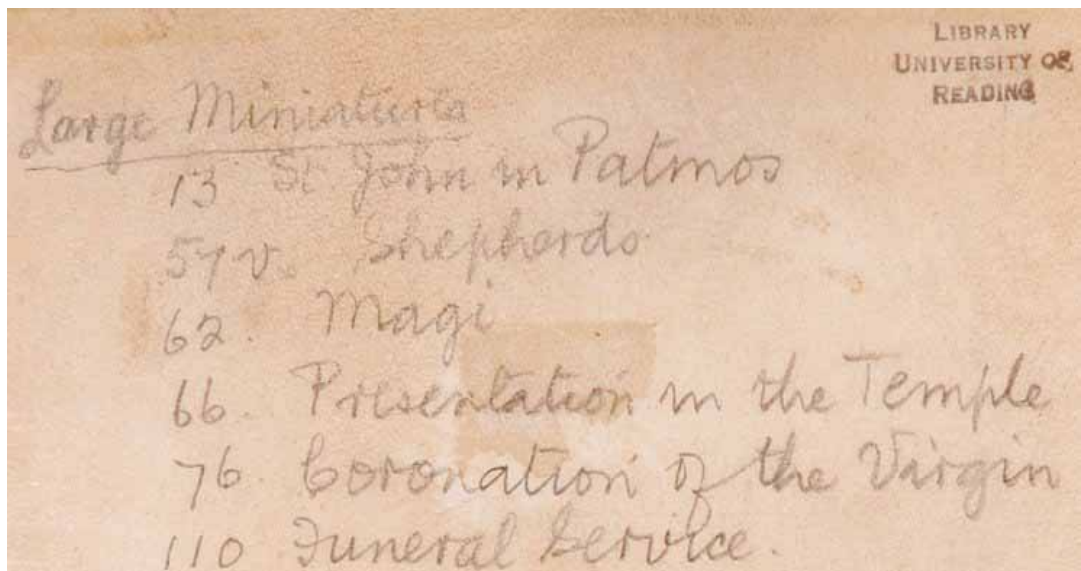 LIBRARY
UNIVERSITY OF
READING
Large Miniatures
13 St John in Patmos
57v. Shepherds
62. Magi
66. Presentation in the Temple
76. Coronation of the Virgin
110 Funeral Service.